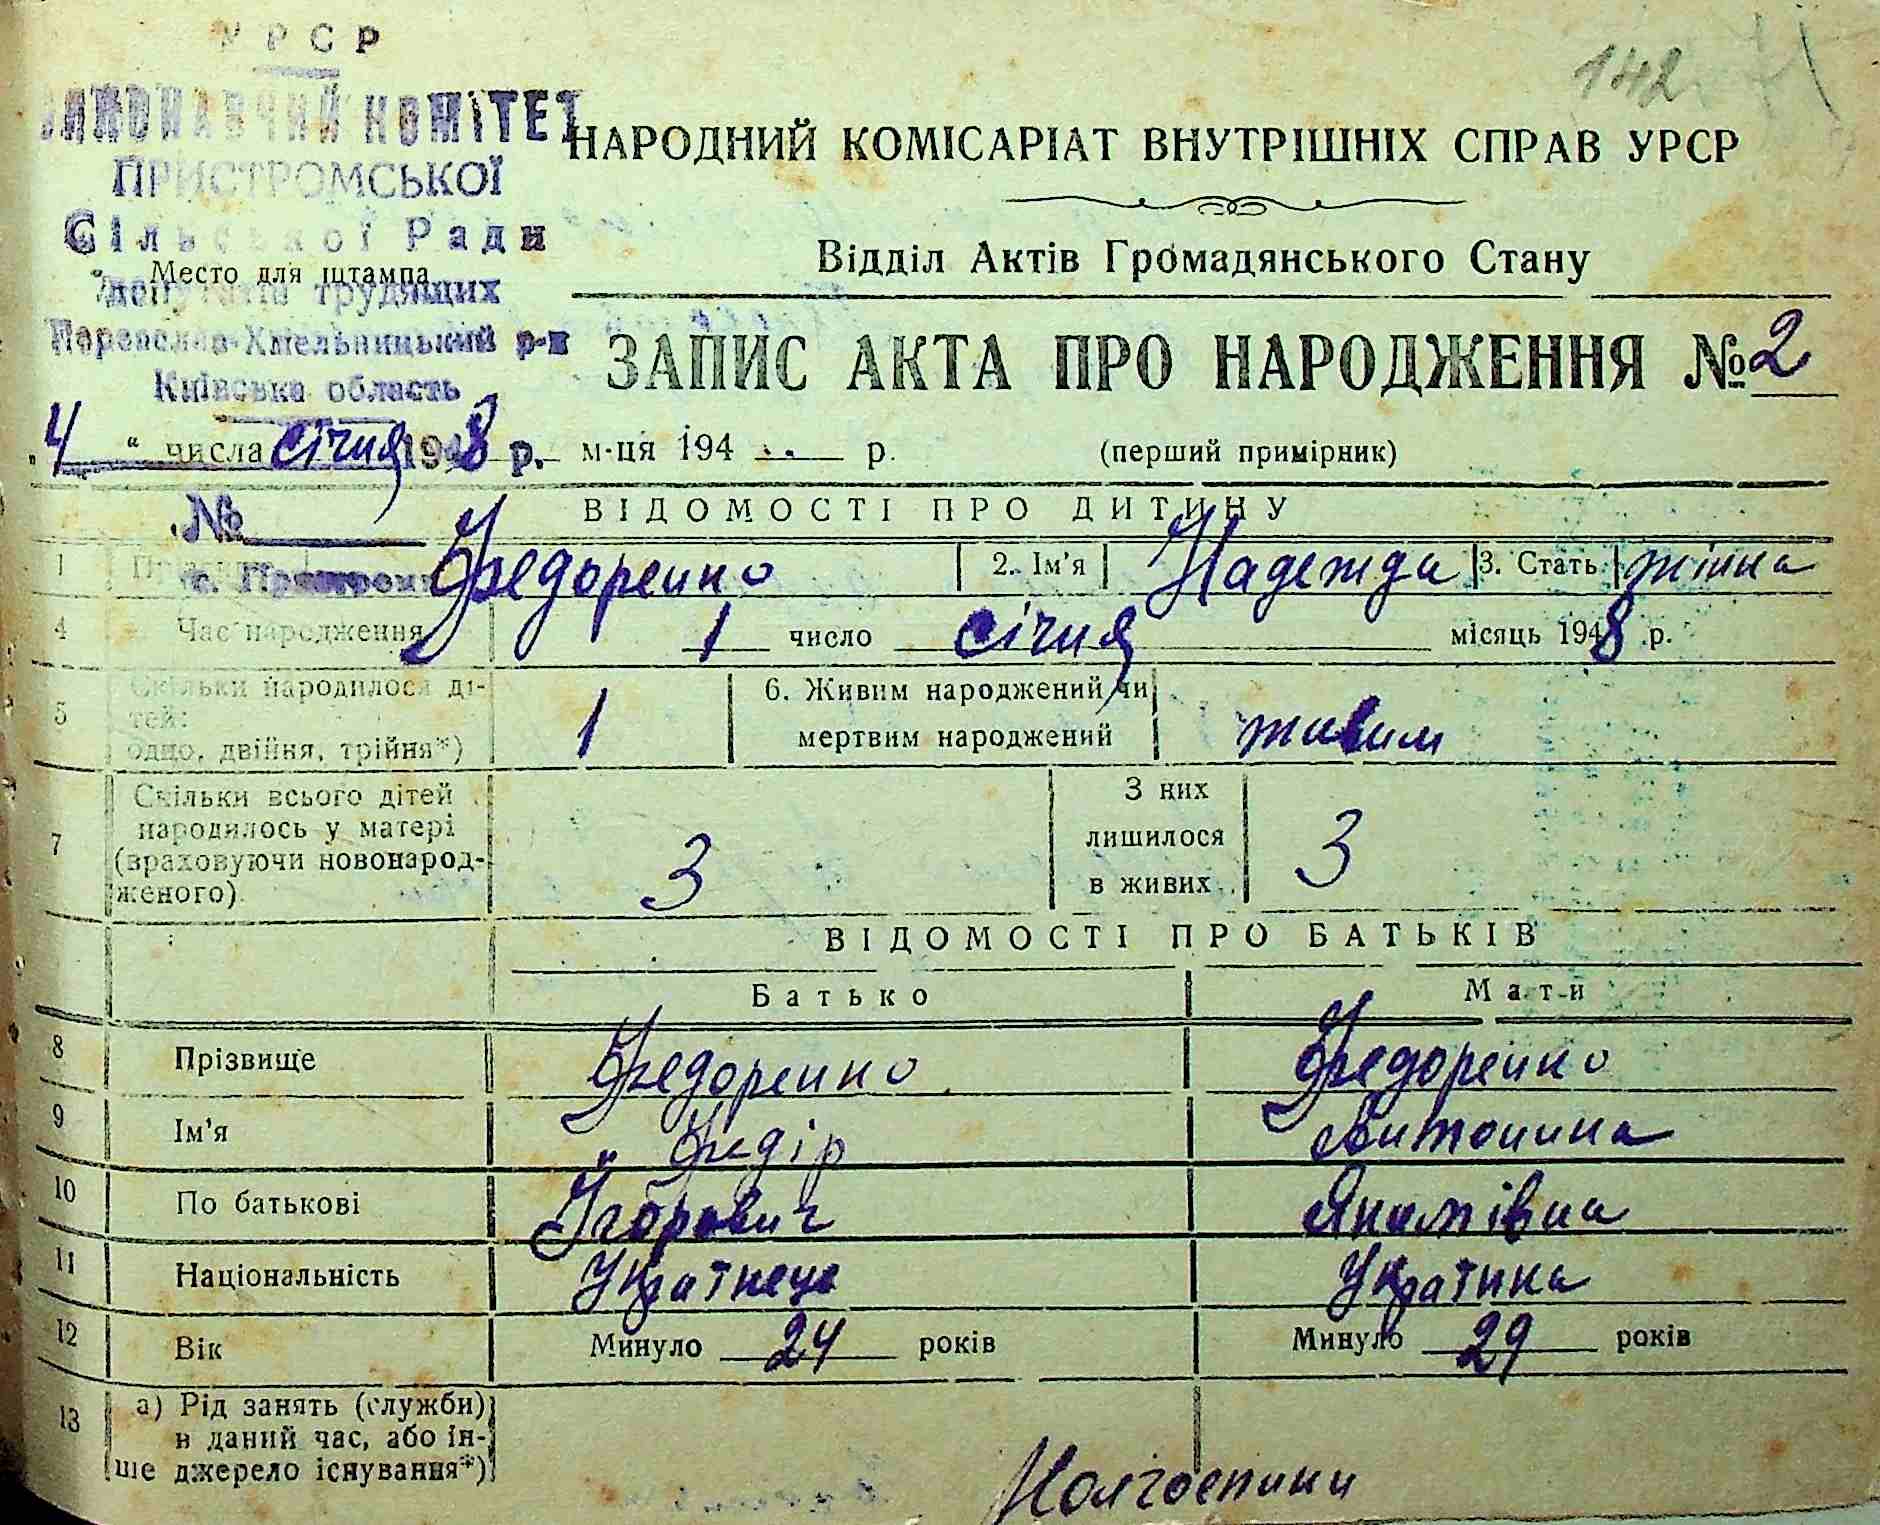 УРСР
142
ВИКОНАВЧИЙ КОМІТЕТ
НАРОДНИЙ КОМІСАРІАТ ВНУТРІШНІХ СПРАВ УРСР
ПРИСТРОМСЬКОЇ
Сільської Ради
Відділ Актів Громадянського Стану
Место для штампа
депутатів трудящих
Переяслав-Хмельницький р-н
Київська область
ЗАПИС АКТА ПРО НАРОДЖЕННЯ № 2
„4“ числа січня 1948 р. м-ця 194 р. (перший примірник)
№
ВІДОМОСТІ ПРО ДИТИНУ
1 Федоренко 2. Ім'я Надежда 3. Стать жінка
4 Час народження 1 число січня місяць 1948 р.
5 Скільки народилося ді-
тей:
одно, двійня, трійня*) 1 6. Живим народжений чи
мертвим народжений живим
7 Скільки всього дітей
народилось у матері
(враховуючи новонарод-
женого). 3 З них
лишилося
в живих 3
ВІДОМОСТІ ПРО БАТЬКІВ
Батько Мати
8 Прізвище Федоренко Федоренко
9 Ім'я Федір Антонина
10 По батькові Якимівна
11 Національність Українець Українка
12 Вік Минуло 24 років Минуло 29 років
13 а) Рід занять (служби)
в даний час, або ін-
ше джерело існування*) Колгоспники